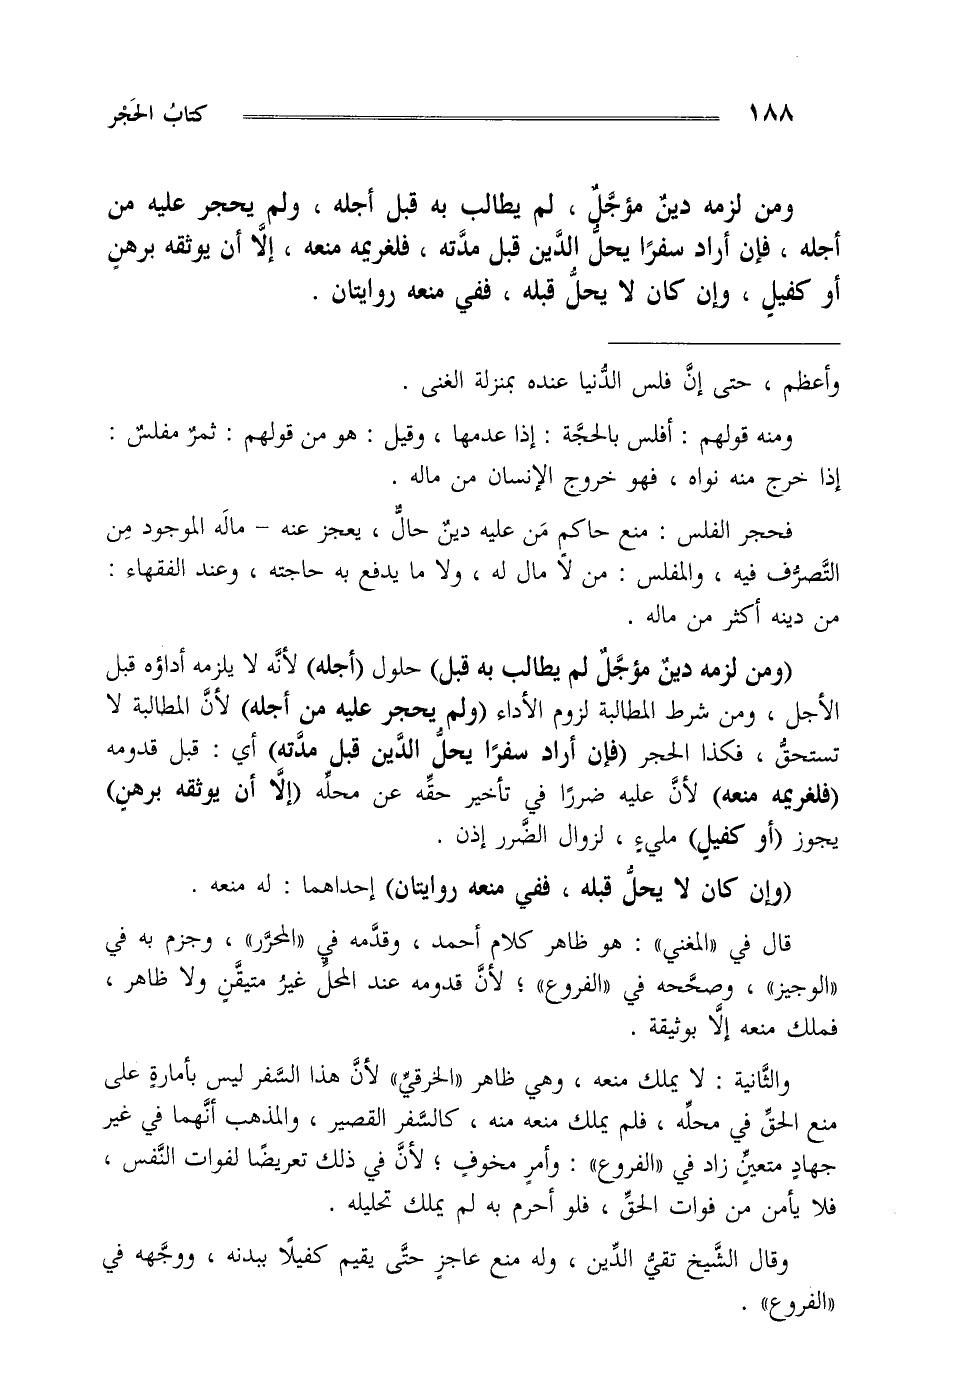 ١٨٨ كتابُ الحَجْر
ومن لزمه دينٌ مؤجَّلٌ ، لم يطالب به قبل أجله ، ولم يحجر عليه من
أجله ، فإن أراد سفرًا يحلُّ الدَّين قبل مدَّته ، فلغريمه منعه ، إلَّا أن يوثقه برهنٍ
أو كفيلٍ ، وإن كان لا يحلُّ قبله ، ففي منعه روايتان .
وأعظم ، حتى إنَّ فلس الدُّنيا عنده بمنزلة الغنى .
ومنه قولهم : أفلس بالحجَّة : إذا عدمها ، وقيل : هو من قولهم : ثمرٌ مفلسٌ :
إذا خرج منه نواه ، فهو خروج الإنسان من ماله .
فحجر الفلس : منع حاكمٍ مَن عليه دينٌ حالٌّ ، يعجز عنه – مالَه الموجود مِن
التَّصرُّف فيه ، والمفلس : من لا مال له ، ولا ما يدفع به حاجته ، وعند الفقهاء :
من دينه أكثر من ماله .
(ومن لزمه دينٌ مؤجَّلٌ لم يطالب به قبل) حلول (أجله) لأنَّه لا يلزمه أداؤه قبل
الأجل ، ومن شرط المطالبة لزوم الأداء (ولم يحجر عليه من أجله) لأنَّ المطالبة لا
تستحقُّ ، فكذا الحجر (فإن أراد سفرًا يحلُّ الدَّين قبل مدَّته) أي : قبل قدومه
(فلغريمه منعه) لأنَّ عليه ضررًا في تأخير حقِّه عن محلِّه (إلَّا أن يوثقه برهنٍ)
يجوز (أو كفيلٍ) مليءٍ ، لزوال الضَّرر إذن .
(وإن كان لا يحلُّ قبله ، ففي منعه روايتان) إحداهما : له منعه .
قال في «المغني» : هو ظاهر كلام أحمد ، وقدَّمه في «المحرَّر» ، وجزم به في
«الوجيز» ، وصحَّحه في «الفروع» ؛ لأنَّ قدومه عند المحلِّ غيرُ متيقَّنٍ ولا ظاهر ،
فملك منعه إلَّا بوثيقة .
والثَّانية : لا يملك منعه ، وهي ظاهر «الخرقيِّ» لأنَّ هذا السَّفر ليس بأمارةٍ على
منع الحقِّ في محلِّه ، فلم يملك منعه منه ، كالسَّفر القصير ، والمذهب أنَّهما في غير
جهادٍ متعينٍّ زاد في «الفروع» : وأمرٍ مخوفٍ ؛ لأنَّ في ذلك تعريضًا لفوات النَّفس ،
فلا يأمن من فوات الحقِّ ، فلو أحرم به لم يملك تحليله .
وقال الشَّيخ تقيُّ الدِّين ، وله منع عاجزٍ حتَّى يقيم كفيلًا ببدنه ، ووجَّهه في
«الفروع» .